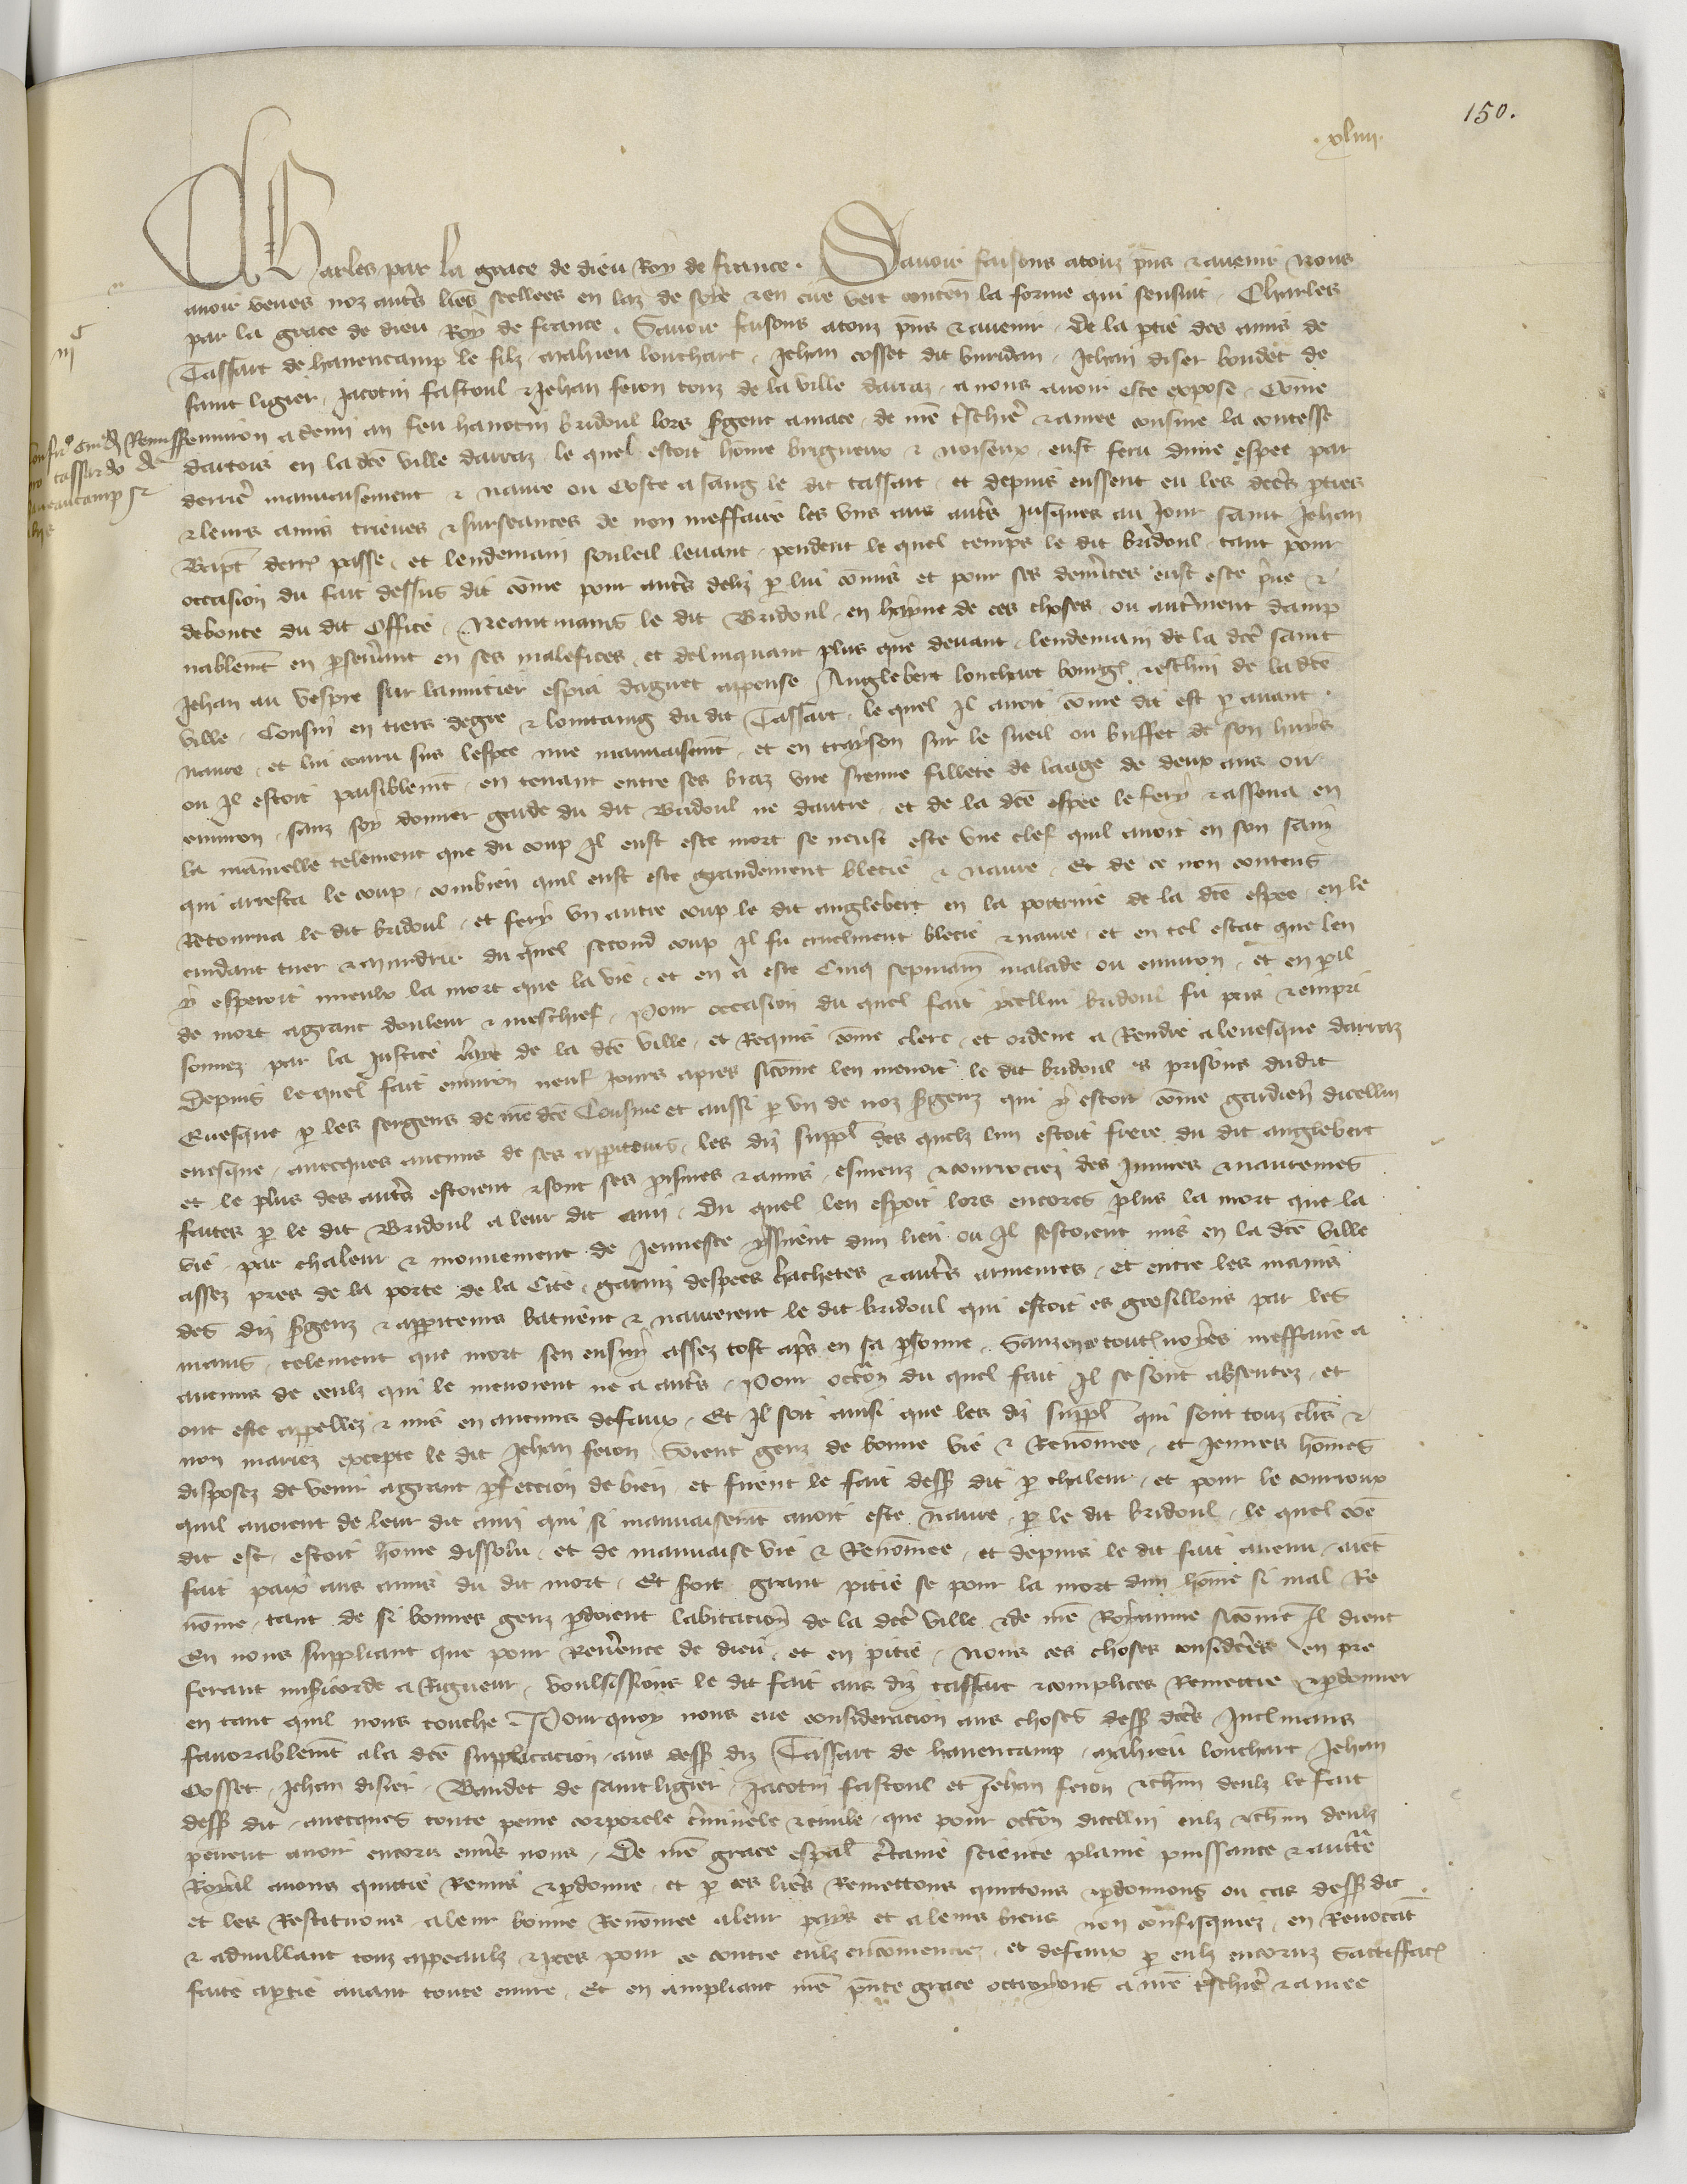 150.
.xliiii.
Charles par la grace de dieu Roy de france . Savoir faisons a touz pns et avenir nous
avoir veues noz autrs lres seellees en laz de soye et en cire vert conten la forme qui sensuit . Charles
par la grace de dieu Roy de france . Savoir faisons a touz pns et avenir . De la ptie des amis de
Tassart de hauencamp le filz . mahieu louchart . Jehan cosset dit buridan . Jehan disier boudet de
saint ligier . Jacotin fastoul et Jehan feron touz de la ville darraz . a nous avoir este expose . Come
environ a demi an feu hanotin bridoul lors sgent a mace de nre treschiere et amee cousine la contesse
dartois en la dce ville darraz . le quel estoit home brigueux et noiseux . eust feru dune espee par
derrier mauvaisement et navre ou coste a sang le dit tassart . et depuis eussent eu les dces pties
et leurs amis trieves et surseances de non meffaire les uns aus autrs jusques au jour saint Jehan
Bapt derr passe . et lendemain souleil levant . pendent le quel temps le dit bridoul tant pour
occasion du fait dessus dit come pour autrs deliz p lui comis et pour ses demerites eust este prive et
deboute du dit office . Neantmains le dit Bridoul en hayne de ces choses ou autrement damp
nablemt en pseverant en ses malefices . et delinquant plus que devant . lendemain de la dce saint
Jehan au vespre sur lanuitier espia daguet apense Anglebert louchart bourgs eschin de la dce
ville . Cousin en tiers degre et lointaing du dit Tassart . le quel il avoit come dit est p avant
navre . et lui couru sus lespee nue mauvaisemt . et en trayson sur le sueil ou buffet de son huys
ou il estoit paisiblemt . en tenant entre ses braz une sienne fillete de laage de deux ans ou
environ . sanz soy donner garde du dit Bridoul ne dautre . et de la dce espee le fery et assena en
la mamelle telement que du coup il eust este mort se neust este une clef quil avoit en son sain
qui arresta le coup . combien quil eust este grandement blecie et navre . Et de ce non contens
Retourna le dit bridoul . et fery un autre coup le dit anglebert en la poictrine de la dce espee . en le
cuidant tuer et murdrir du quel second coup il fu cruelment blecie et navre . et en tel estat que len
y esperoit mieulx la mort que la vie . et en a este cinq sepmain malade ou environ . et en peril
de mort a grant douleur et meschief . Pour occasion du quel fait ycellui bridoul fu pris et empri
sonnez par la justice laye de la dce ville . et Requis come clerc . et ordene a Rendre a levesque darraz
Depuis le quel fait environ neuf jours apres sicome len menoit le dit bridoul es prisons dudit
Evesque p les sergens de nre dce Cousine et aussi p un de noz sgenz qui y estoit come gardien dicellui
evesque . avecques aucuns de ses appiteurs . les diz suppl des quelz lun estoit frere du dit anglebert
et le plus des autrs estoient et sont ses prismes et amis . esmeuz et courrociez des injures et navreures
faites p le dit Bridoul a leur dit ami . Du quel len espoit lors encores plus la mort que la
vie . par chaleur et mouvement de jeunesce yssirent dun lieu ou il sestoient mis en la dce ville
assez pres de la porte de la Cite . garniz despees hachetes et autrs armeures . et entre les mains
des diz sgenz et appiteurs batirent et navrerent le dit bridoul qui estoit es gresillons par les
mains . telement que mort sen ensuy assez tost aprs en sa psonne . Sanz en toutesvoyes meffaire a
aucuns de ceulx qui le menoient ne a autrs . Pour occon du quel fait il se sont absentez . et
ont este appellez et mis en aucuns defaux . Et il soit ainsi que les diz suppl qui sont touz clers et
non mariez excepte le dit Jehan feron soient genz de bonne vie et Renomee . et jeunes homes
disposez de venir a grant pfeccion de bien . et firent le fait dess dit p chaleur . et pour le courroux
quil avoient de leur dit ami qui si mauvaisemt avoit este navre . p le dit bridoul . le quel coe
dit est . estoit home dissolu . et de mauvaise vie et Renomee . et depuis le dit fait avenu . aient
fait paix aus amis du dit mort . Et seroit grant pitie se pour la mort dun home si mal Re
nome . tant de si bonnes genz pdoient labitacion de la dce ville et de nre Royaume sicome il dient
En nous suppliant que pour Reverence de dieu . et en pitie . Nous ces choses considerees en pre
ferant misicorde a Rigueur . voulsissions le dit fait aus diz tassart et complices Remettre et pdonner
en tant quil nous touche . Pour quoy nous eue consideracion aus choses dess dces Inclinans
favorablemt a la dce supplicacion . aus dess diz Tassart de hauencamp . mahieu louchart Jehan
Cosset . Jehan disier . Baudet de saint ligier . Jacotin fastoul et Jehan feron et chun deulz le fait
dess dit . avecques toute peine corporele criminele et civile . que pour occon dicellui eulz et chun deulz
pevent avoir encoru envers nous . De nre grace espal certaine science plaine puissance et auctte
Royal avons quictie Remis et pdonne . et p ces lres Remettons quictons et pdonnons ou cas dess dit .
et les Restituons a leur bonne Renomee a leur pays et a leurs biens non confisquiez . en Revocat
et adnullant touz appeaulz et pces pour ce contre eulz encomenciez . et defaux p eulz encoruz Satisffacc
faite a ptie avant toute euvre . Et en ampliant nre pnte grace octroyons a nre treschiere et amee